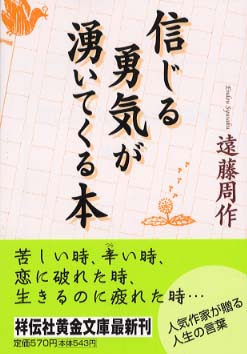 信じる
勇気が
湧いてくる本
Endou Syusaku
遠藤周作
苦しい時、辛い時、
恋に破れた時、
生きるのに疲れた時…
人気作家が贈る
人生の言葉
祥伝社黄金文庫最新刊
定価570円 本体543円